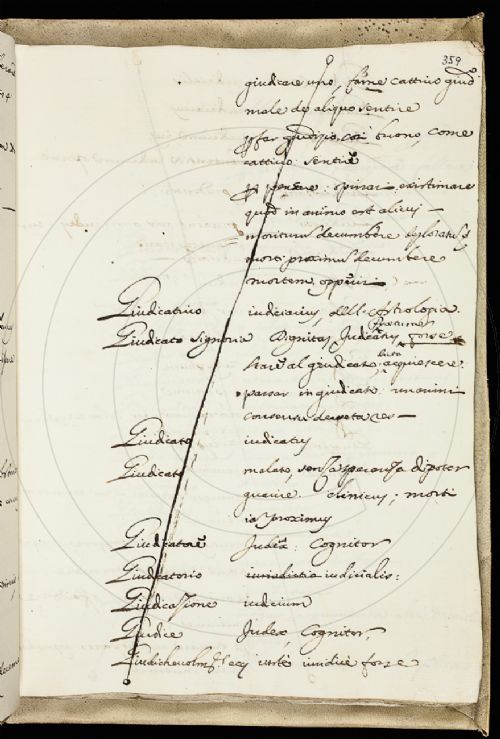 359
giudicare uno, farne cattivo giud
male de aliquo sentire
far giudizio, così buono, come
cattivo: sentire
pensare: opinari existimare
quid in animo est alicui —
moriturus decumbere
morti proximus decumbere
mortem oppetere
Giudicativo iudiciarius, dell'Astrologia.
Giudicato Signoria Dignitas, Judicatus forse
stare al giudicato, acquiescere
passar in giudicato: unanimi
consensu
Giudicato iudicatus
Giudicato malato, senza speranza di poter
guarire clinicus; morti
proximus
Giudicatore Judex: Cognitor
Giudicatorio iudicialis:
Giudicazione iudicium
Giudice Judex, Cognitor,
forse